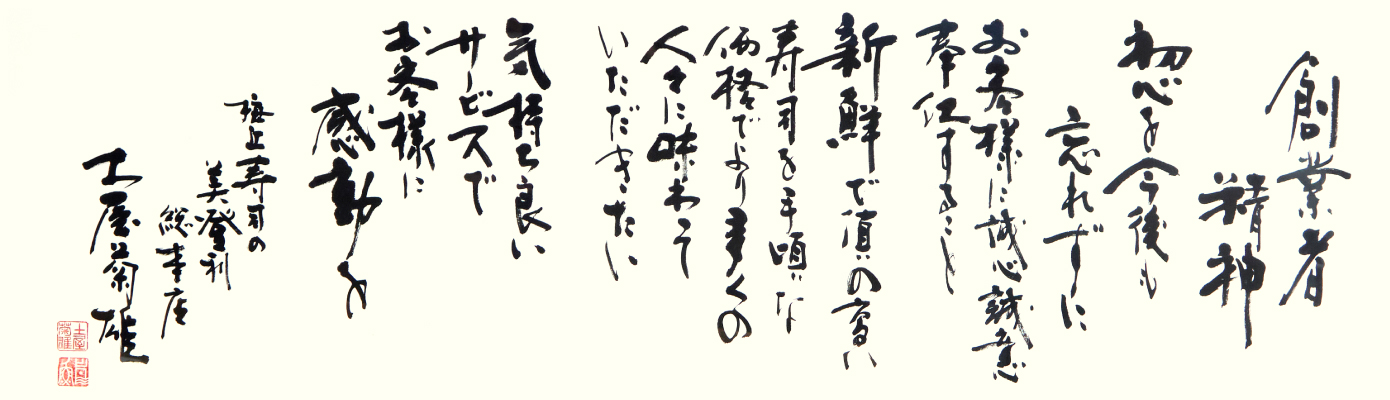 創業者
精神
初心を今後も
忘れずに
お客様に誠心誠意
奉仕すること
新鮮で頂の高い
寿司を手頃な
価格でより多くの
人々に味わって
いただきたい
気持ち良い
サービスで
お客様に
感動を
梅丘寿司の
美登利
総本店
土屋菊雄